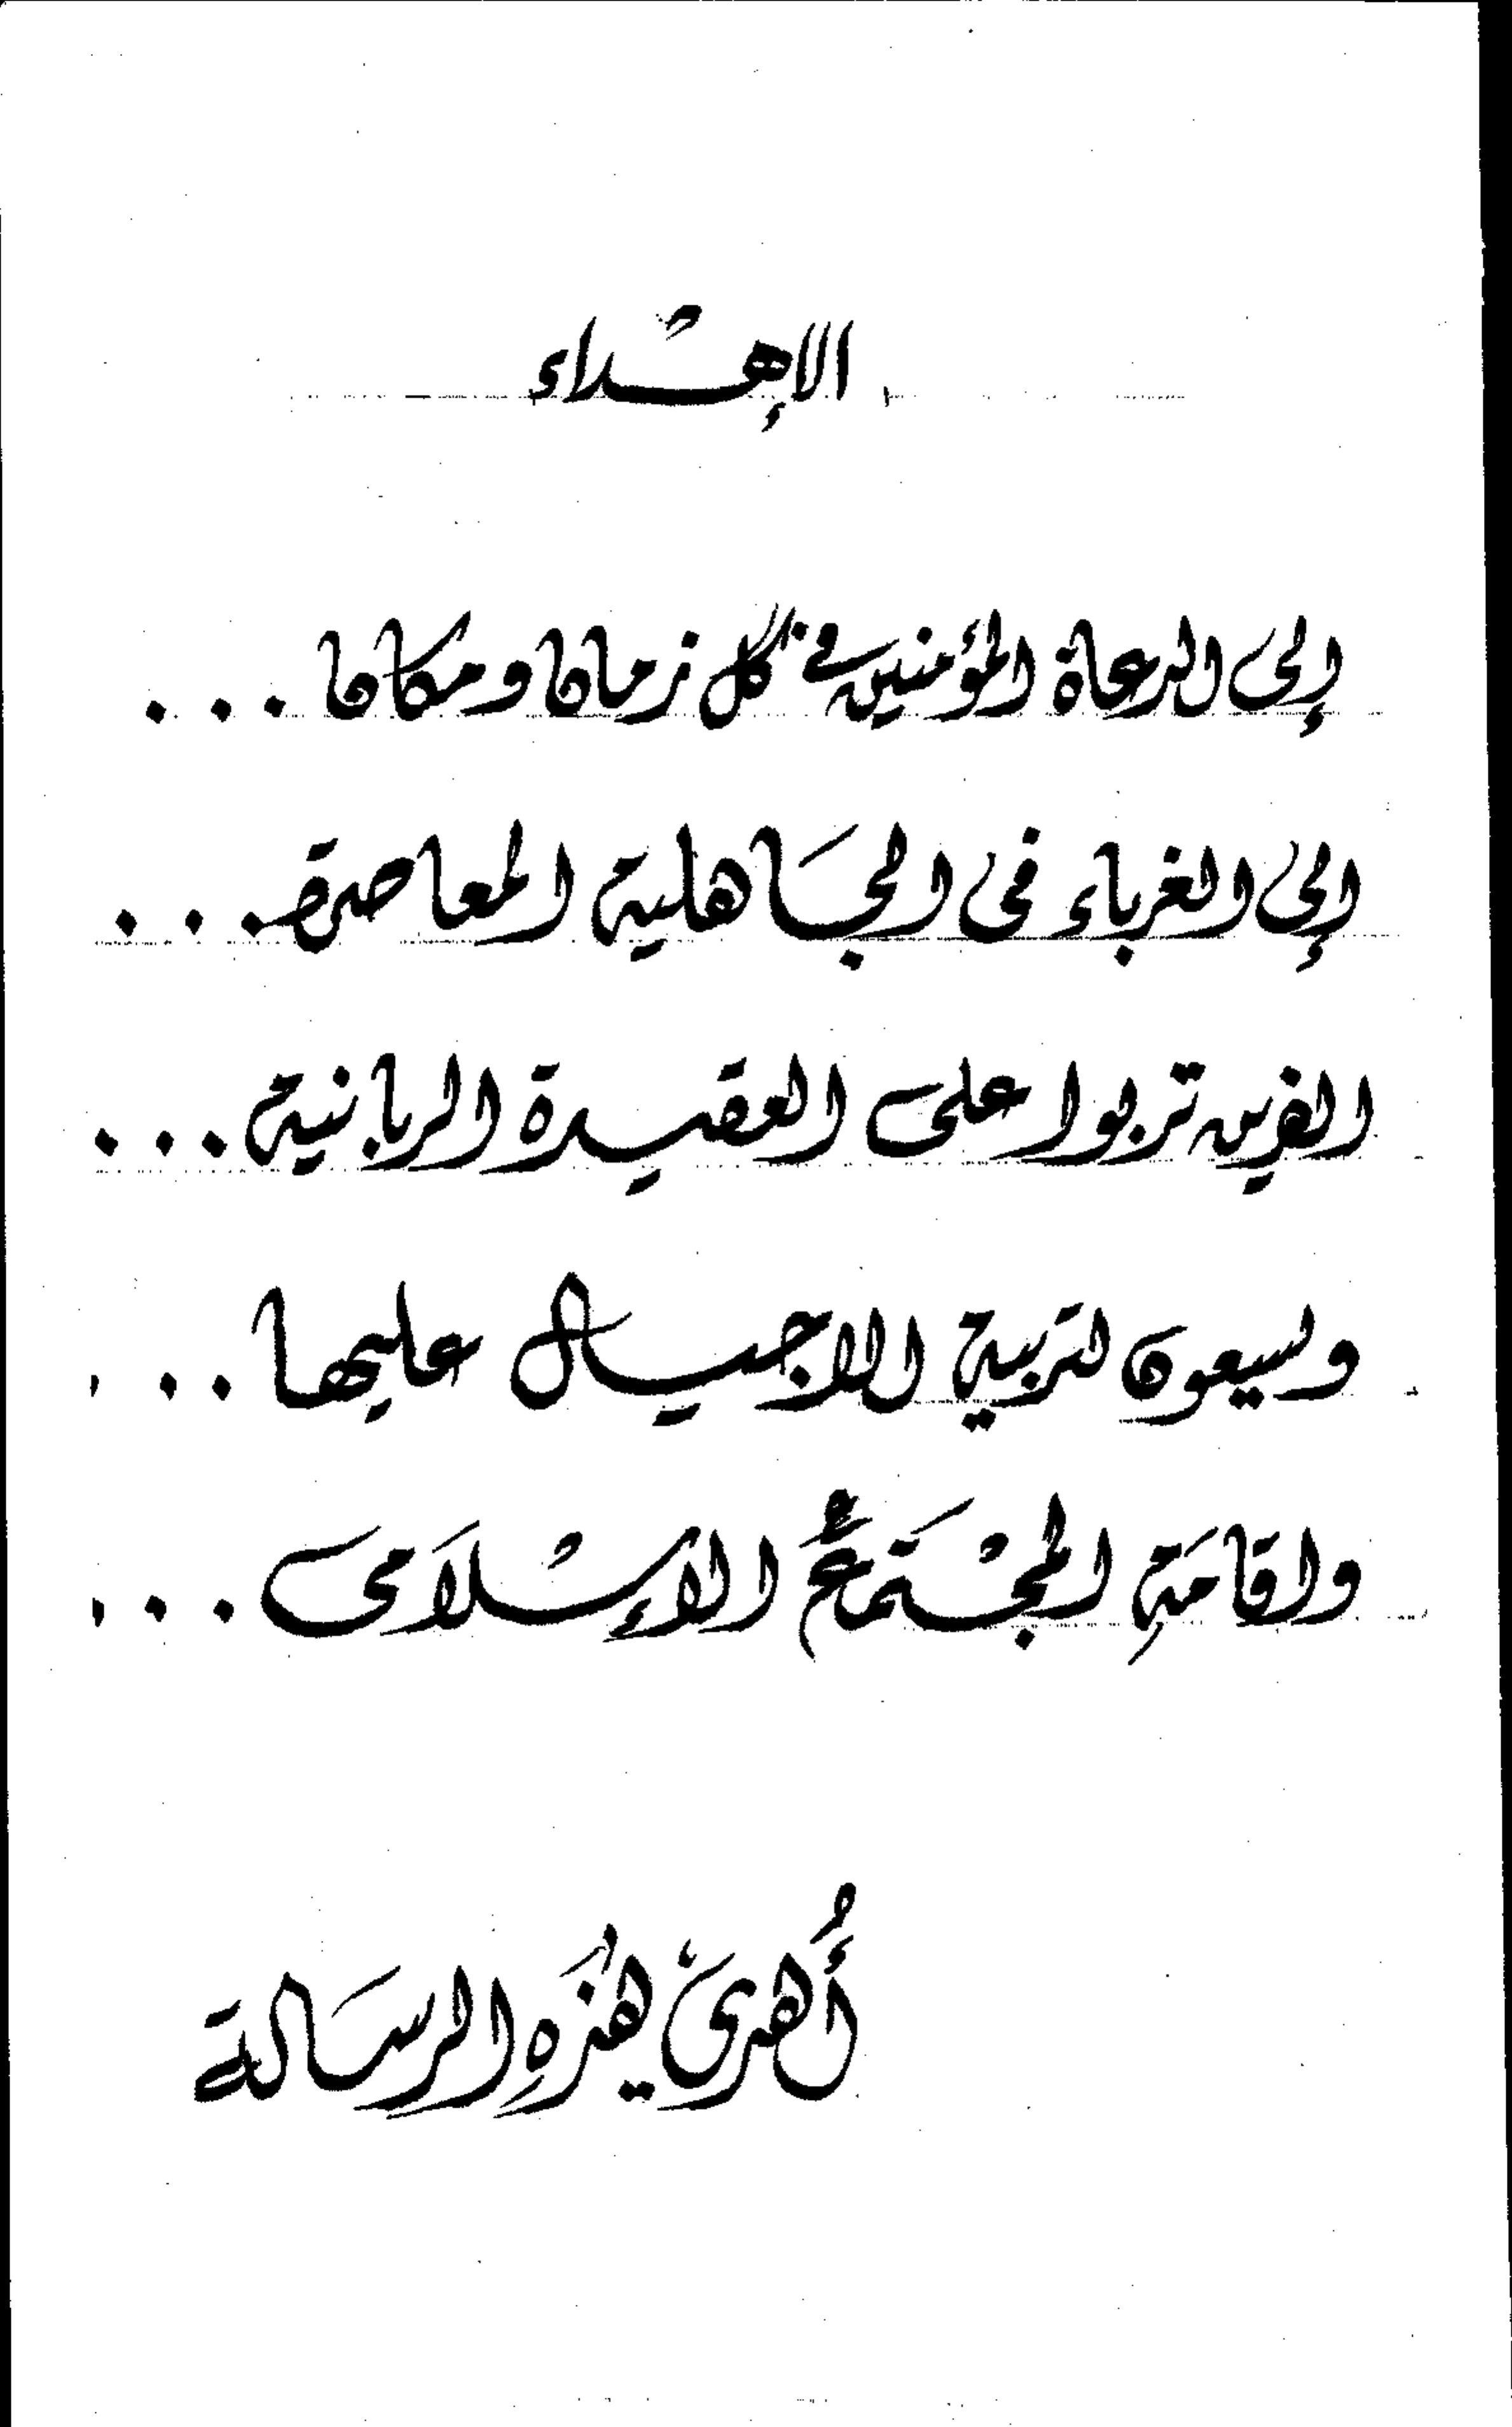 الإهداء
إلى الدعاة المؤمنين في كل زمان ومكان ...
إلى الغرباء في الجاهلية المعاصرة ...
الذين تربوا على العقيدة الربانية ...
ويسعون لتربية الاجيال عليها ...
واقامة المجتمع الإسلامي ...
أُهدي هذه الرسالة